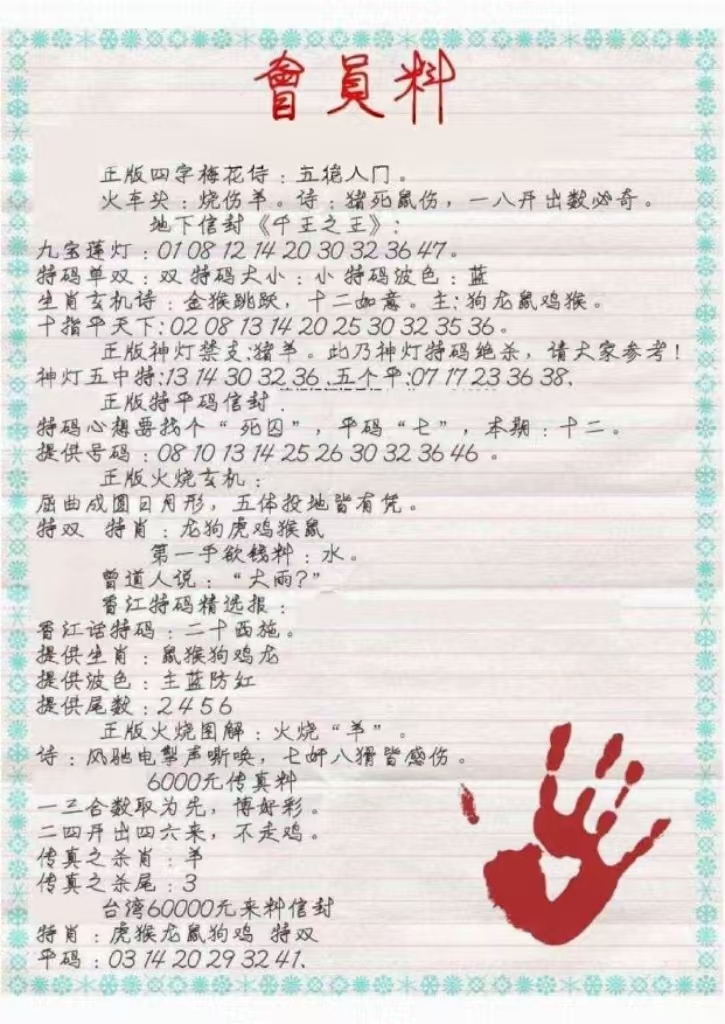 會員料
正版四字梅花诗：五绝人门。
火车头：烧伤羊。诗：猪死鼠伤，一八开出数必奇。
地下信封《千王之王》：
九宝莲灯：01 08 12 14 20 30 32 36 47。
特码单双：双 特码大小：小 特码波色：蓝
生肖玄机诗：金猴跳跃，十二如意。主：狗龙鼠鸡猴。
十指平天下：02 08 13 14 20 25 30 32 35 36。
正版神灯禁支：猪羊。此乃神灯特码绝杀，请大家参考！
神灯五中特：13 14 30 32 36、五个平：07 17 23 36 38、
正版特平码信封．
特码心想要找个“死囚”，平码“七”，本期：十二。
提供号码：08 10 13 14 25 26 30 32 36 46 。
正版火烧玄机：
屈曲成圆日月形，五体投地皆有凭。
特双 特肖：龙狗虎鸡猴鼠
第一手欲钱料：水。
曾道人说：“大雨？”
香江特码精选报：
香江话特码：二十西施。
提供生肖：鼠猴狗鸡龙
提供波色：主蓝防红
提供尾数：2 4 5 6
正版火烧图解：火烧“羊”。
诗：风驰电掣声嘶唤，七奸八猾皆感伤。
6000元传真料
一三合数取为先，博好彩。
二四开出四六来，不走鸡。
传真之杀肖：羊
传真之杀尾：3
台湾60000元来料信封
特肖：虎猴龙鼠狗鸡 特双
平码：03 14 20 29 32 41、